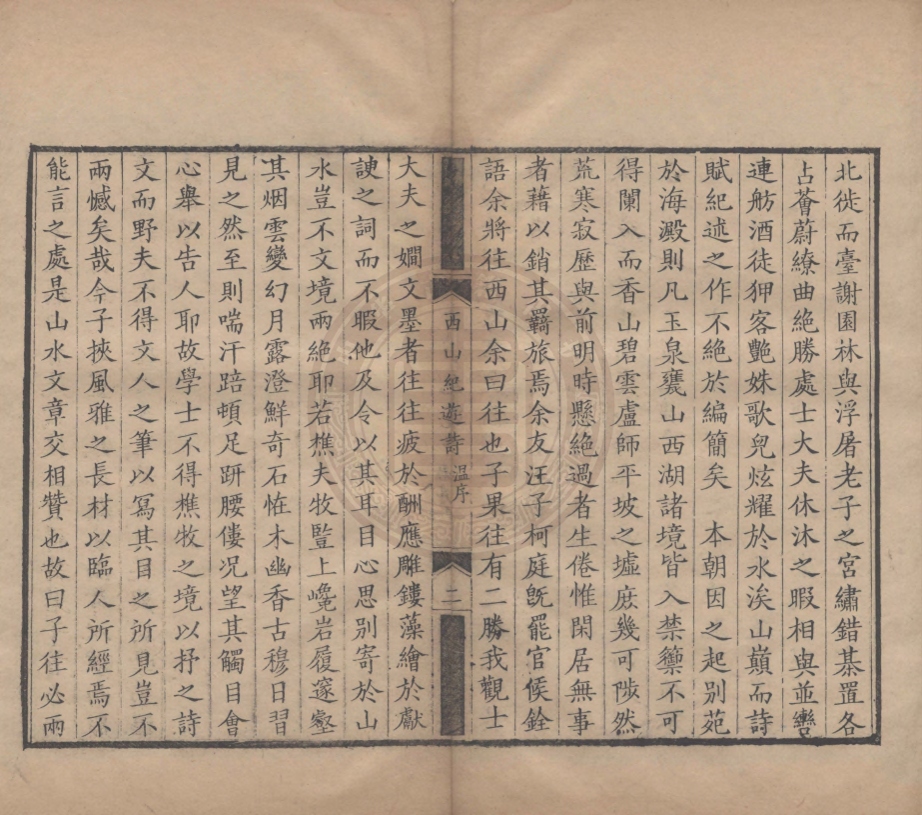 北徙而臺謝園林與浮屠老子之宮繡錯棊置各
占薈蔚繚曲絕勝處士大夫休沐之暇相與並轡
連舫酒徒狎客艷姝歌兒炫耀於水涘山巔而詩
賦紀述之作不絕於編簡矣　本朝因之起別苑
於海澱則凡玉泉甕山西湖諸境皆入禁籞不可
得闌入而香山碧雲盧師平坡之墟庶幾可陟然
荒寒寂歷與前明時懸絕過者生倦惟閑居無事
者藉以銷其羇旅焉余友汪子柯庭旣罷官候銓
語余將往西山余曰往也子果往有二勝我觀士
西山紀遊詩 温序 二
大夫之嫺文墨者往往疲於酬應雕鏤藻繪於獻
諛之詞而不暇他及令以其耳目心思別寄於山
水豈不文境兩絕耶若樵夫牧豎上巉岩履邃壑
其烟雲變幻月露澄鮮奇石恠木幽香古穆日習
見之然至則喘汗踣頓足趼腰僂况望其觸目會
心舉以告人耶故學士不得樵牧之境以抒之詩
文而野夫不得文人之筆以寫其目之所見豈不
兩憾矣哉今子挾風雅之長材以臨人所經焉不
能言之處是山水文章交相贊也故曰子往必兩